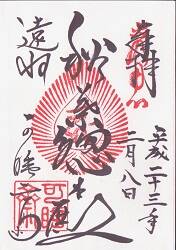 奉拝
平成二十三年
二月八日
秋葉総本殿
遠州
可睡斎